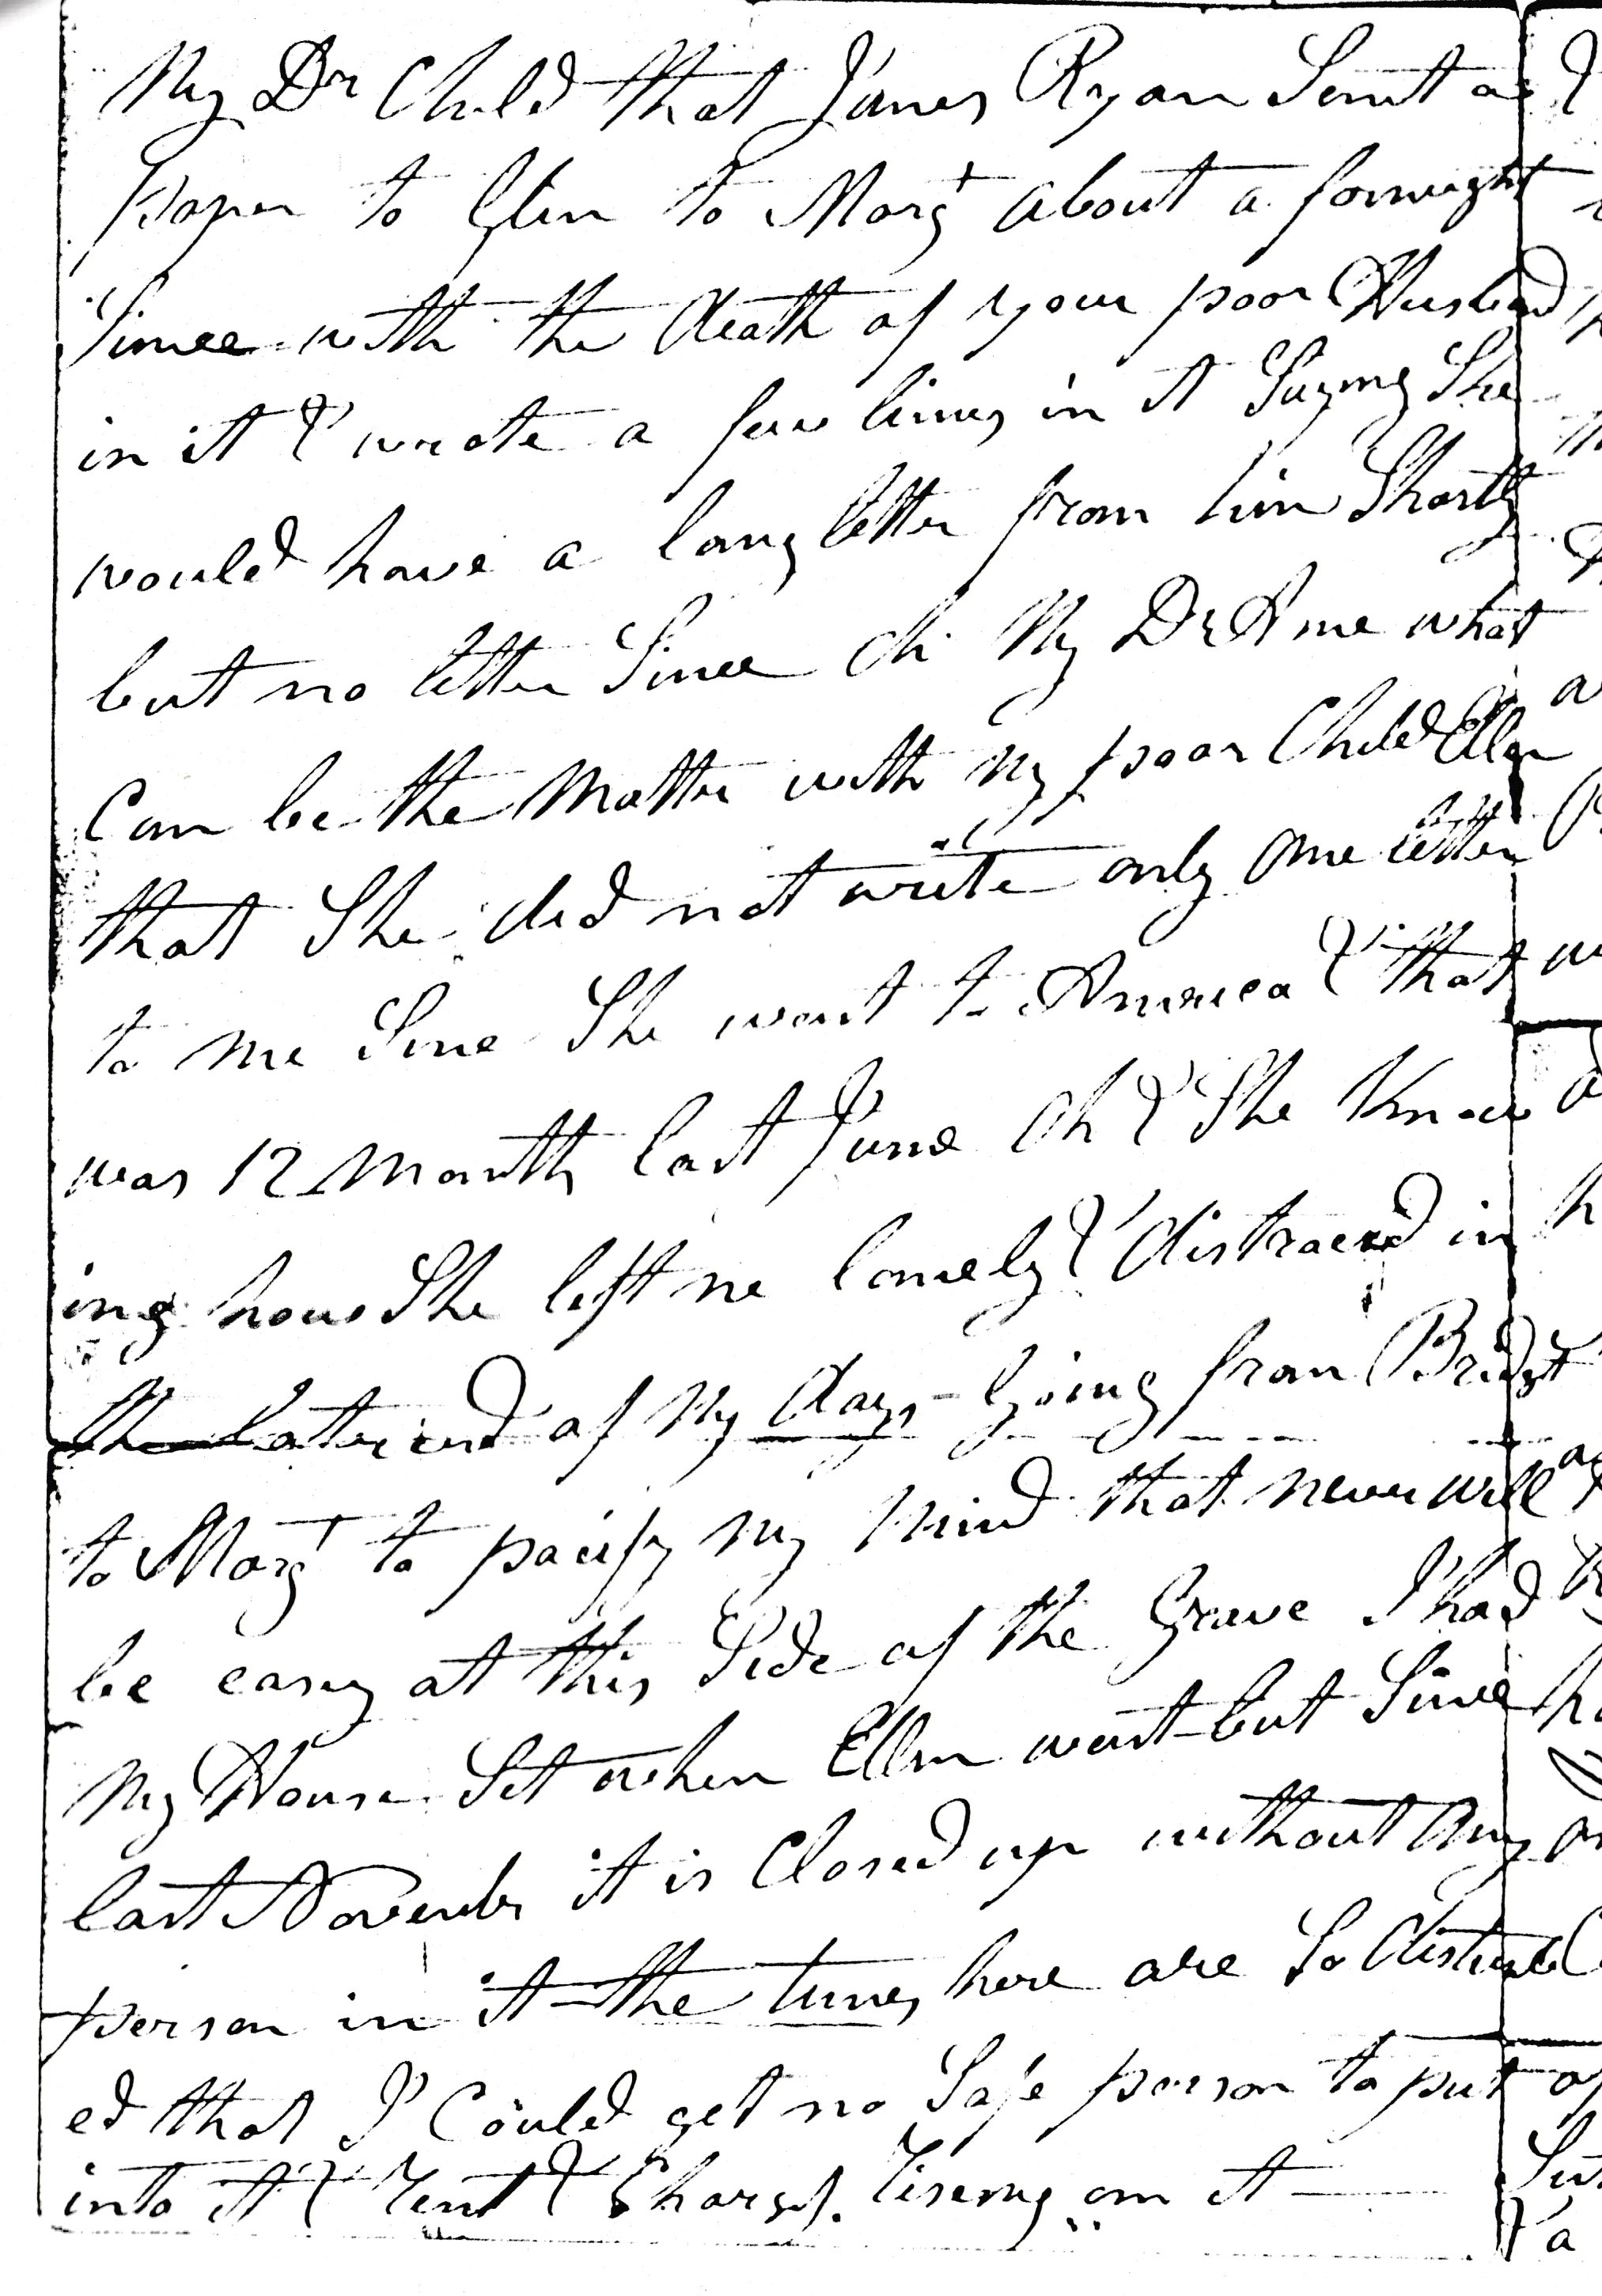 My Dr Child that James Ryan Sent a
paper to Glin to Margt about a fornight
Since with the death of your poor Husband
in it & wrote a few lines in it Saying She
would have a long letter from him Shortly
but no letter Since Oh My Dr Ane what
Can be the Matter with My poor Child Ellen
that She did not write only one letter
to me Sinc She went to America & that
was 12 Month last June Oh & She Know
ing how She left me lonely & distraced in
the later end of My days - Going from Bridgt
to Margt to pacify my Mind that never will
be easy at this Side of the Grave I had
My House Set when Ellen went but Since
last November it is Closed up without Any
person in it - the times here are So disturb
ed that I Could get no Safe person to put
into it & Rent & Charges riseing on it -